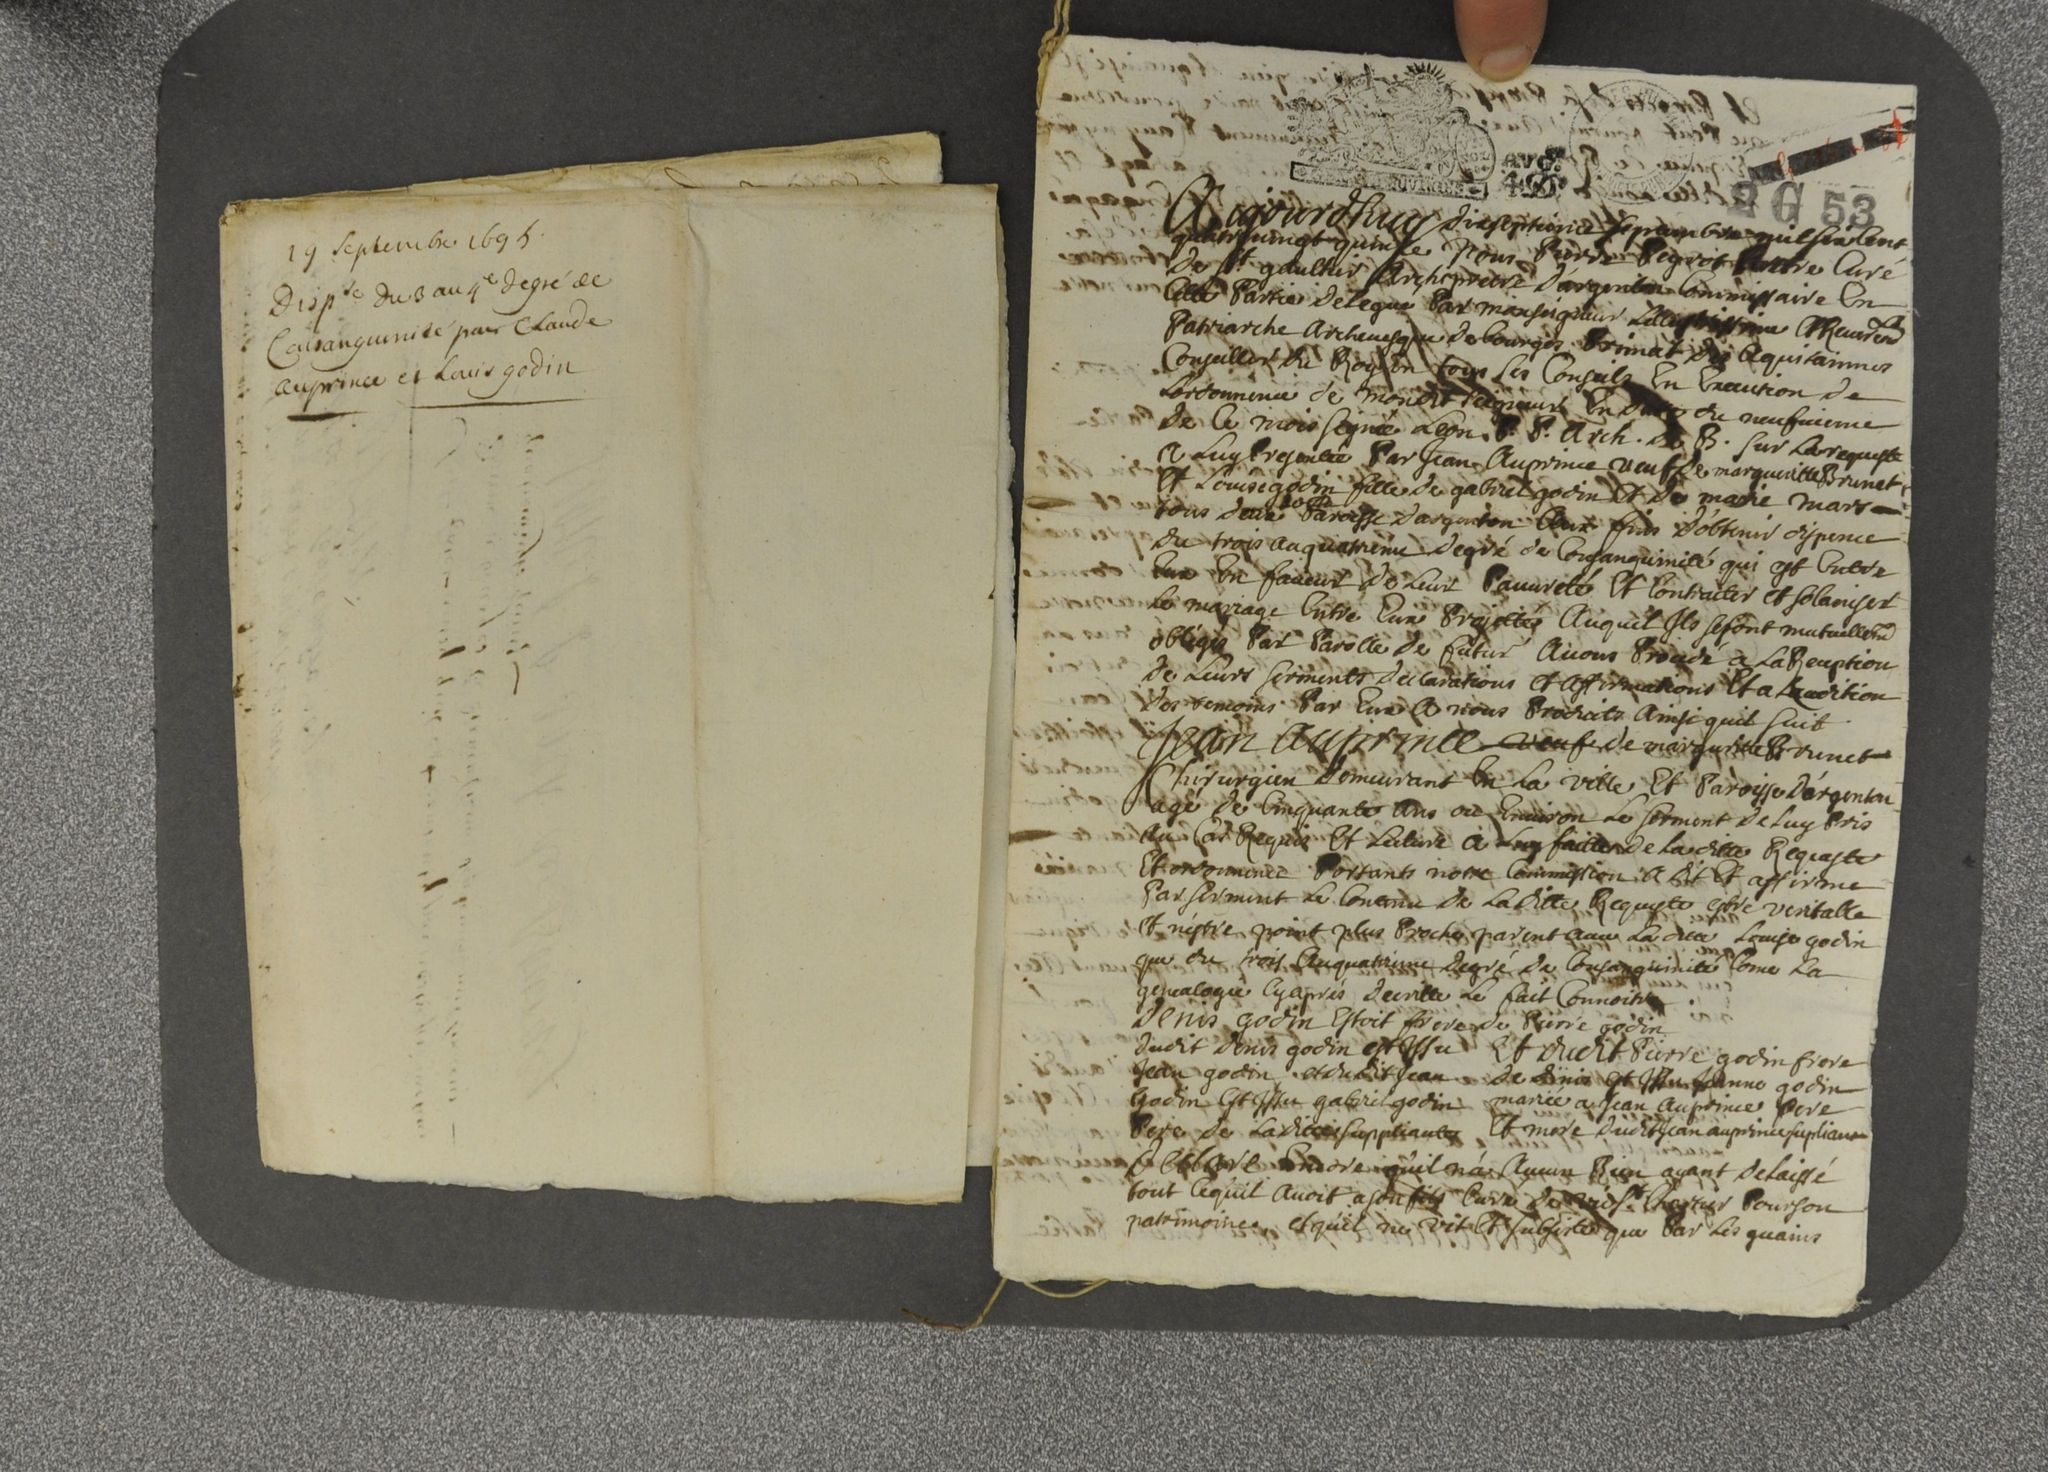 19 Septembre 1695.
Disp.se du 3 au 4e degré de
Consanguinité pour Claude
auprince et Louis godin
AVG.ON
2 G 53
Aujourdhuy dixseptieme Septembre mil six cent
quatrevingt quinze Nous Pierre Peyrot Prêtre Curé
De St. gaultier Archiprêtre D'argenton Commissaire En
Cette Partie Delegué Par monseigneur
Patriarche Archevesque de bourges Primat des Aquitaines
Conseiller du Roy En tous Ses Conseils En Execution de
Lordonnence de mondit seigneur En datte du neufuieme
De Ce mois signée Leon P. P. Arch. de B. sur La requeste
a Luy Presentée Par Jean Auprince veuf de margueritte Brunet
Et Louise godin fille de gabriel godin Et De marie mars
tous deux de la Paroisse dargenton Aux fins D'obtenir dispence
du trois au quatrieme degré de Consanguinité qui est Entre
Eux En faueur de Leur Pauureté Et Contracter et solamiser
Le mariage Entre Eux Projetté Auquel Ils se sont mutuellemt
obligés Par Parolle de futur Auons Procedé a La Reception
de Leurs serments declarations et affirmations Et a Laudition
des temoins Par Eux a nous Produits Ainsi quil suit
Jean Auprince veuf de margueritte Brunet
Chirurgien demeurant En La ville Et Paroisse D'argenton
agé de Cinquante Ans ou Enuiron Le serment de Luy Pris
Au Cas Requis Et Lecture a Luy faitte de La ditte Requeste
Et ordonnence Portants notre Commission a dit Et affirme
Par serment Le Contenu de La ditte Requeste estre veritable
Et n'estre point plus Proche parent auec La ditte Louise godin
que du trois Au quatrieme degré de Consanguinité Come La
genealogie Cyaprés decritte Le fait Connoitre
Denis godin Estoit frere de Pierre godin
Dudit Denis godin est Issu Et dudit Pierre godin frere
Jean godin et dudit Jean De Denis est Issu Jeanne godin
Godin Est Issu gabriel godin mariée a Jean Auprince Pere
Pere de La ditte suppliante Et mere dudit Jean auprince supliant
Declare Encore qu'il n'a Aucun Bien ayant delaissé
tout Cequil Auoit a son fils Curé de Pour son
patrimoine et qu'il ne vit Et subsiste que Par Les guains